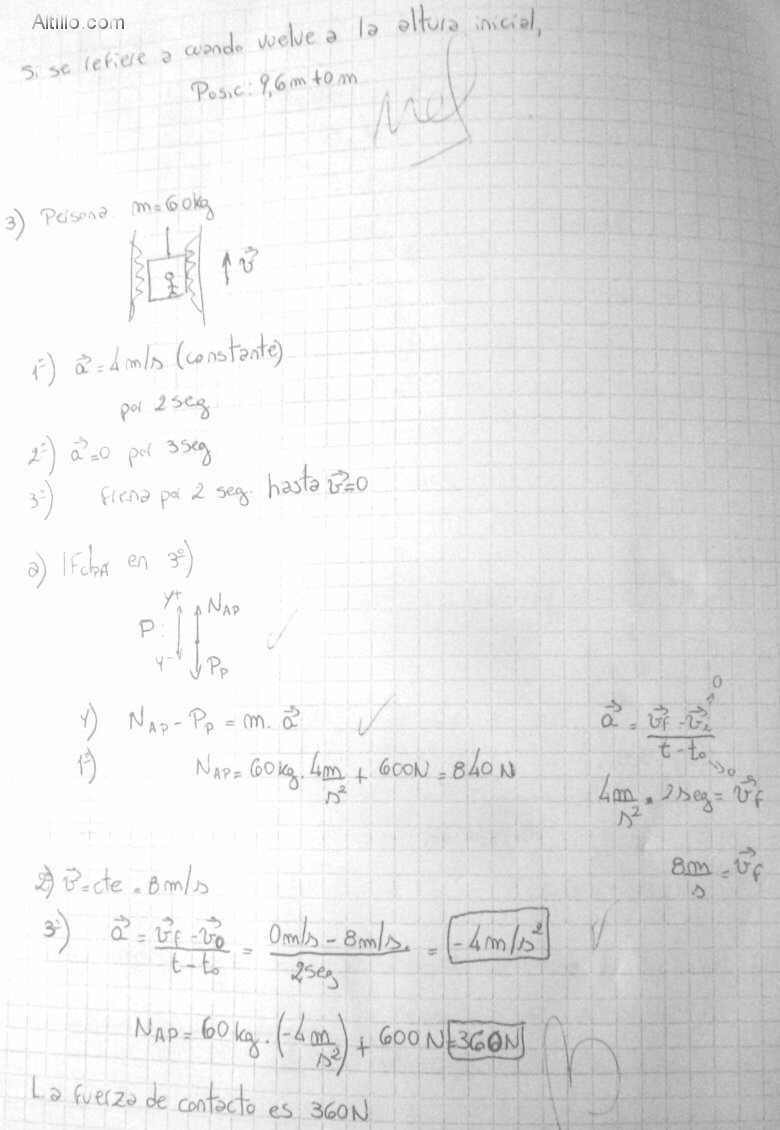 Altillo.com
Si se refiere a cuando vuelve a la altura inicial,
Posic: 9,6m + 0m
3) Persona m=60kg
v⃗
1º) a⃗ = 4m/s (constante)
por 2 seg
2º) a⃗=0 por 3seg
3º) frena por 2 seg. hasta v⃗=0
a) |FcPA| en 3º)
y+ NAP
P:
y- PP
y) NAP - PP = m. a⃗
1º) NAP = 60kg. 4m/s² + 600N = 840N
0
a⃗ = (v⃗f - v⃗i)/(t - t₀) 0
4m/s² . 2seg = v⃗f
8m/s = v⃗f
2º) v⃗=cte = 8m/s
3º) a⃗ = (v⃗f - v⃗0)/(t - t₀) = (0m/s - 8m/s.)/2seg = -4m/s²
NAP = 60kg. (-4m/s²) + 600N = 360N
La fuerza de contacto es 360N